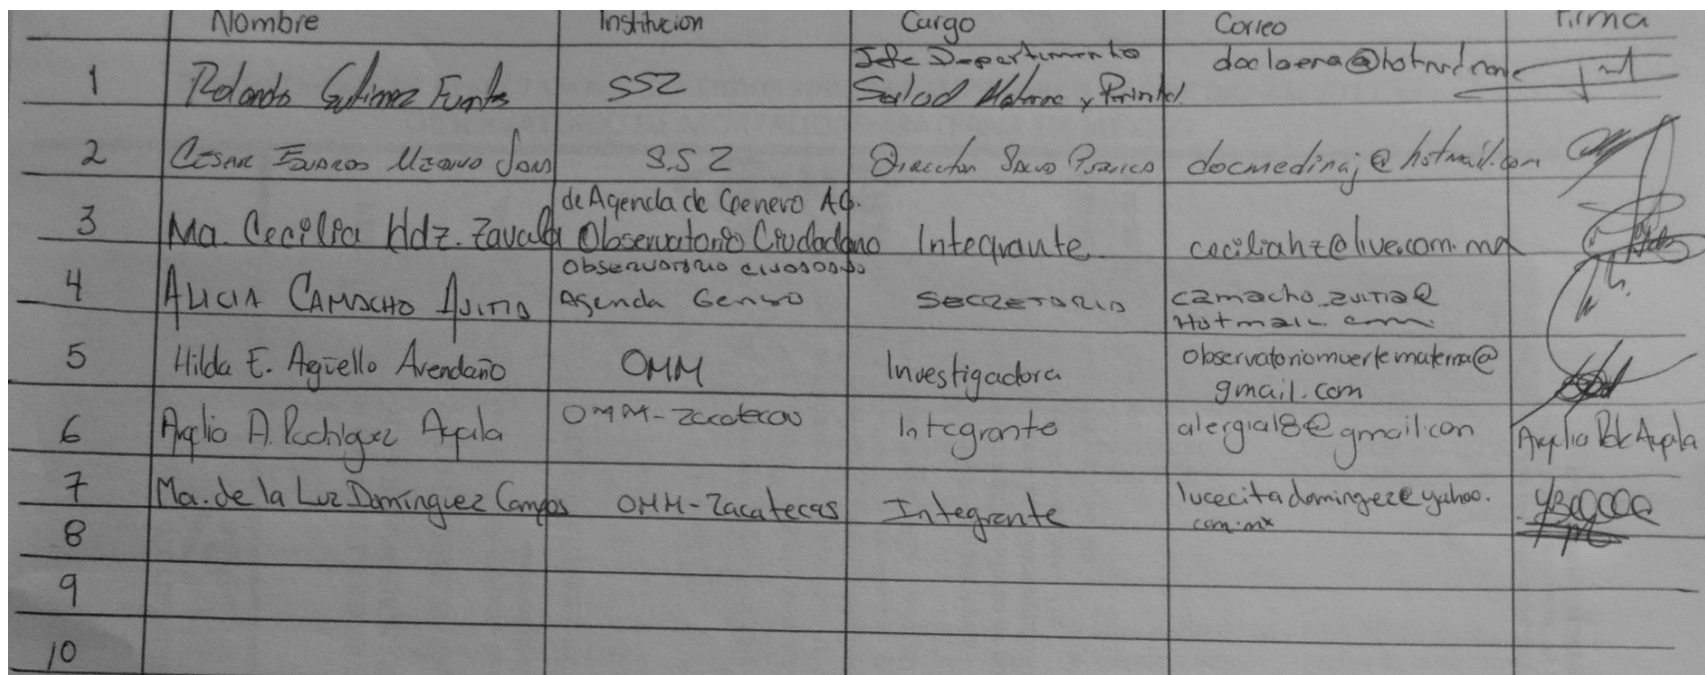 Nombre Institucion Cargo Correo Firma
1 Rolando Gutierrez Fuentes SSZ Jefe Departamento
Salud Materna y Perinatal
2 CESAR EDUARDO MEDINA S.S.Z Director Salud docmedinaj@hotmail.com
3 Ma. Cecilia Hdz. Zavala de Agenda de Genero AC.
Observatorio Ciudadano Integrante ceciliahz@live.com.mx
4 ALICIA CAMACHO Observatorio Ciudadano
Agenda Genero SECRETARIA camacho_zuitia@
Hotmail com
5 Hilda E. Agüello Avendaño OMM Investigadora observatoriomuertematerna@
gmail.com
6 A. Rodriguez Ayala OMM-Zacatecas Integrante alergial8@gmail.com Ayala
7 Ma. de la Luz Domínguez Campos OMM-Zacatecas Integrante lucecitadominguez@yahoo.
com.mx
8
9
10